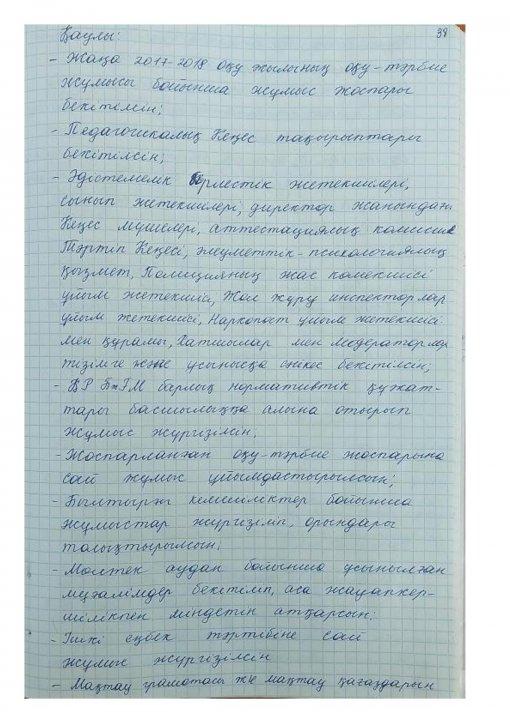 38
Қаулы:
- Жаңа 2017-2018 оқу жылының оқу-тәрбие
жұмысы бойынша жұмыс жоспары
бекітілсін;
- Педагогикалық Кеңес тақырыптары
бекітілсін;
- Әдістемелік бірлестік жетекшілері,
сынып жетекшілері, директор жанындағы
Кеңес мүшелері, аттестациялық комиссия
Тәртіп Кеңесі, әлеуметтік-психологиялық
қызмет, Полицияның жас көмекшісі
ұйым жетекшісі, Жол жүру инспекторлар
ұйым жетекшісі, Наркопост ұйым жетекшісі
мен құрамы, Хатшылар мен модераторлар
тізімге және ұсынысқа сәйкес бекітілсін;
- ҚР БжҒМ барлық нормативтік құжат-
тары басшылыққа алына отырып
жұмыс жүргізілсін;
- Жоспарланған оқу-тәрбие жоспарына
сай жұмыс ұйымдастырылсын;
- Былтырғы кемшіліктер бойынша
жұмыстар жүргізіліп, орындары
толықтырылсын;
- Мөлтек аудан бойынша ұсынылған
мұғалімдер бекітіліп, аса жауапкер-
шілікпен міндетін атқарсын;
- Ішкі еңбек тәртібіне сай
жұмыс жүргізілсін
- Мақтау грамотасы ж/е мақтау қағаздарын